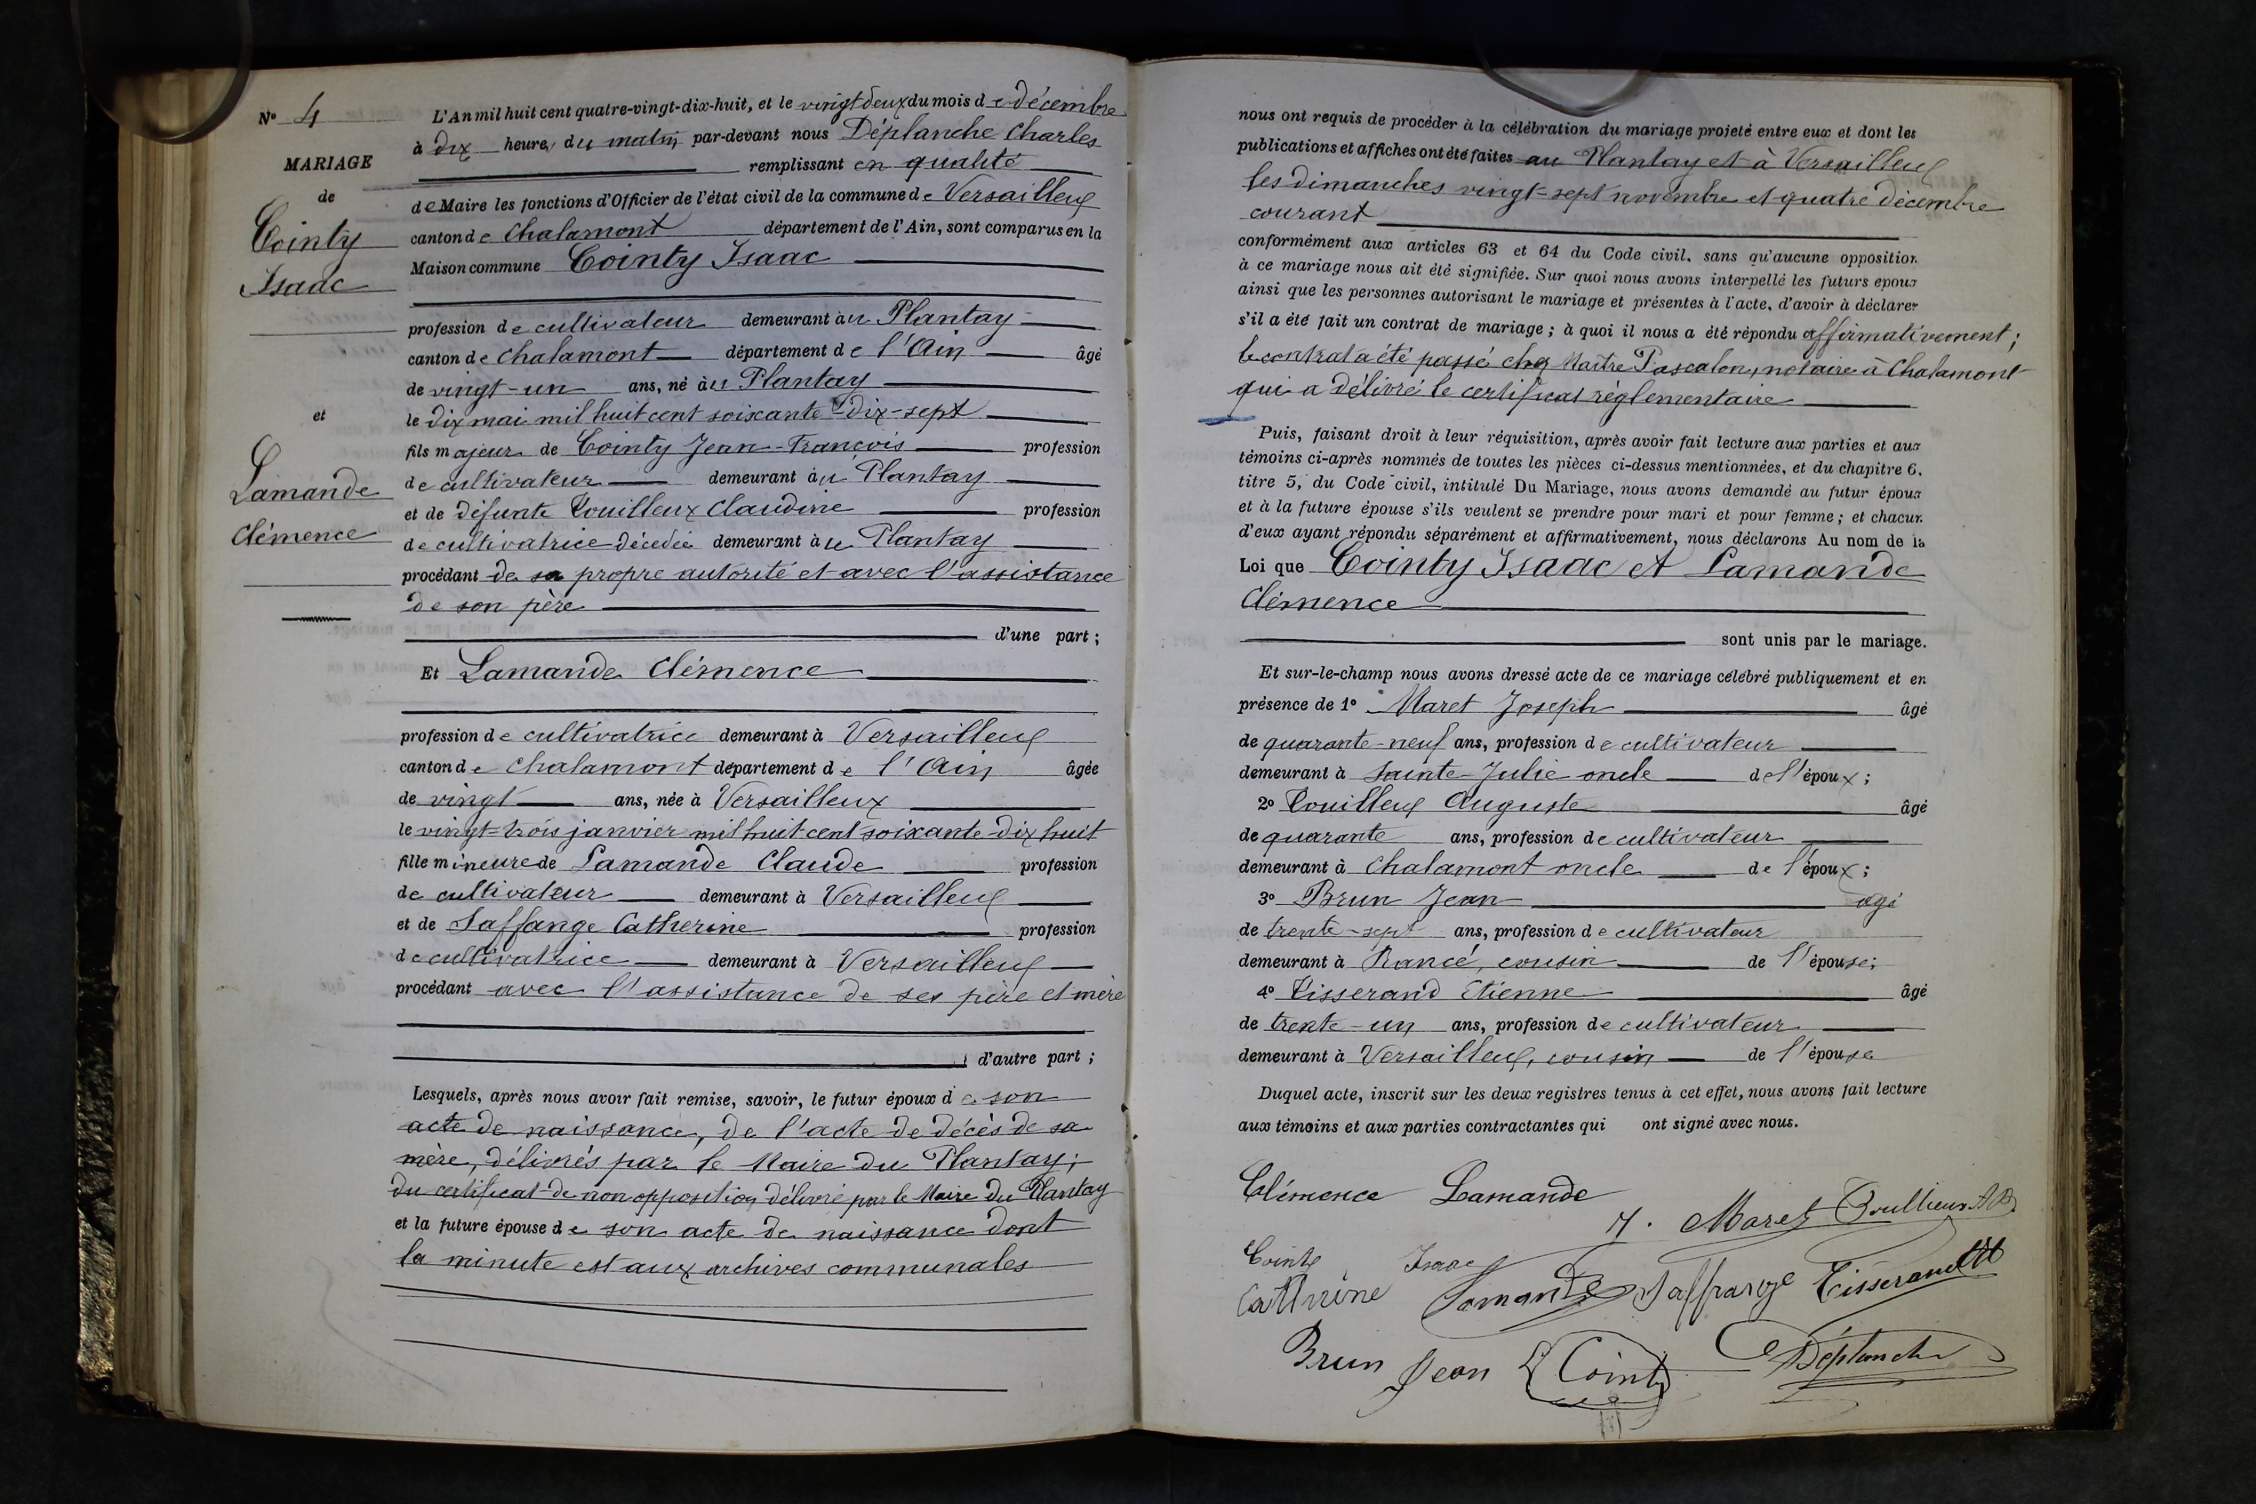 N° 4
MARIAGE
de
Cointy
Isaac
et
Lamande
Clémence
L'An mil huit cent quatre-vingt-dix-huit, et le vingt deux du mois de décembre
à dix heures du matin par-devant nous Déplanche Charles
remplissant en qualité
de Maire les fonctions d'Officier de l'état civil de la commune de Versailleux
canton de Chalamont département de l'Ain, sont comparus en la
Maison commune Cointy Isaac
profession de cultivateur demeurant au Plantay
canton de Chalamont département de l'Ain âgé
de vingt-un ans, né au Plantay
le dix mai mil huit cent soixante-dix-sept
fils majeur de Cointy Jean-François profession
de cultivateur demeurant au Plantay
et de défunte Touilleux Claudine profession
de cultivatrice décédée demeurant au Plantay
procédant de sa propre autorité et avec l'assistance
de son père
d'une part ;
Et Lamande Clémence
profession de cultivatrice demeurant à Versailleux
canton de Chalamont département de l'Ain âgée
de vingt ans, née à Versailleux
le vingt-trois janvier mil huit cent soixante-dix huit
fille mineure de Lamande Claude profession
de cultivateur demeurant à Versailleux
et de Saffange Catherine profession
de cultivatrice demeurant à Versailleux
procédant avec l'assistance de ses père et mère
d'autre part ;
Lesquels, après nous avoir fait remise, savoir, le futur époux de son
acte de naissance, de l'acte de décès de sa
mère, délivrés par le Maire du Plantay;
du certificat de non opposition délivré par le Maire du Plantay
et la future épouse de son acte de naissance dont
la minute est aux archives communales
nous ont requis de procéder à la célébration du mariage projeté entre eux et dont les
publications et affiches ont été faites au Plantay et à Versailleux
les dimanches vingt-sept novembre et quatre décembre
courant
conformément aux articles 63 et 64 du Code civil, sans qu'aucune opposition
à ce mariage nous ait été signifiée. Sur quoi nous avons interpellé les futurs epoux
ainsi que les personnes autorisant le mariage et présentes à l'acte, d'avoir à déclarer
s'il a été fait un contrat de mariage ; à quoi il nous a été répondu affirmativement ;
le contrat a été passé chez Maître Pascalon, notaire à Chalamont
qui a délivré le certificat réglementaire
Puis, faisant droit à leur réquisition, après avoir fait lecture aux parties et aux
témoins ci-après nommés de toutes les pièces ci-dessus mentionnées, et du chapitre 6,
titre 5, du Code civil, intitulé Du Mariage, nous avons demandé au futur époux
et à la future épouse s'ils veulent se prendre pour mari et pour femme ; et chacun
d'eux ayant répondu séparément et affirmativement, nous déclarons Au nom de la
Loi que Cointy Isaac et Lamande
Clémence
sont unis par le mariage.
Et sur-le-champ nous avons dressé acte de ce mariage célébré publiquement et en
présence de 1° Maret Joseph âgé
de quarante-neuf ans, profession de cultivateur
demeurant à Sainte-Julie oncle de l'époux ;
2° Touilleux Auguste âgé
de quarante ans, profession de cultivateur
demeurant à Chalamont oncle de l'époux ;
3° Brun Jean âgé
de trente-sept ans, profession de cultivateur
demeurant à Rancé, cousin de l'épouse ;
4° Tisserand Etienne âgé
de trente-un ans, profession de cultivateur
demeurant à Versailleux, cousin de l'épouse
Duquel acte, inscrit sur les deux registres tenus à cet effet, nous avons fait lecture
aux témoins et aux parties contractantes qui ont signé avec nous.
Clémence Lamande
Maret
Cointy Isaac
Lamande Saffrange Tisserand
Brun Jean Cointy Déplanche